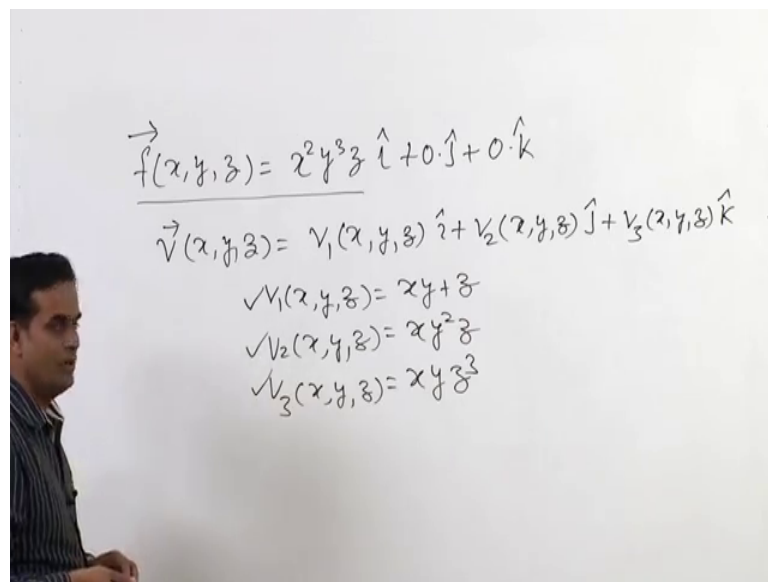 f⃗(x,y,z)= x²y³z î +0·ĵ+0·k̂
v⃗(x,y,z)= v₁(x,y,z) î+ v₂(x,y,z) ĵ+ v₃(x,y,z) k̂
✓v₁(x,y,z)= xy+z
✓v₂(x,y,z)= xy²z
✓v₃(x,y,z)= xyz³